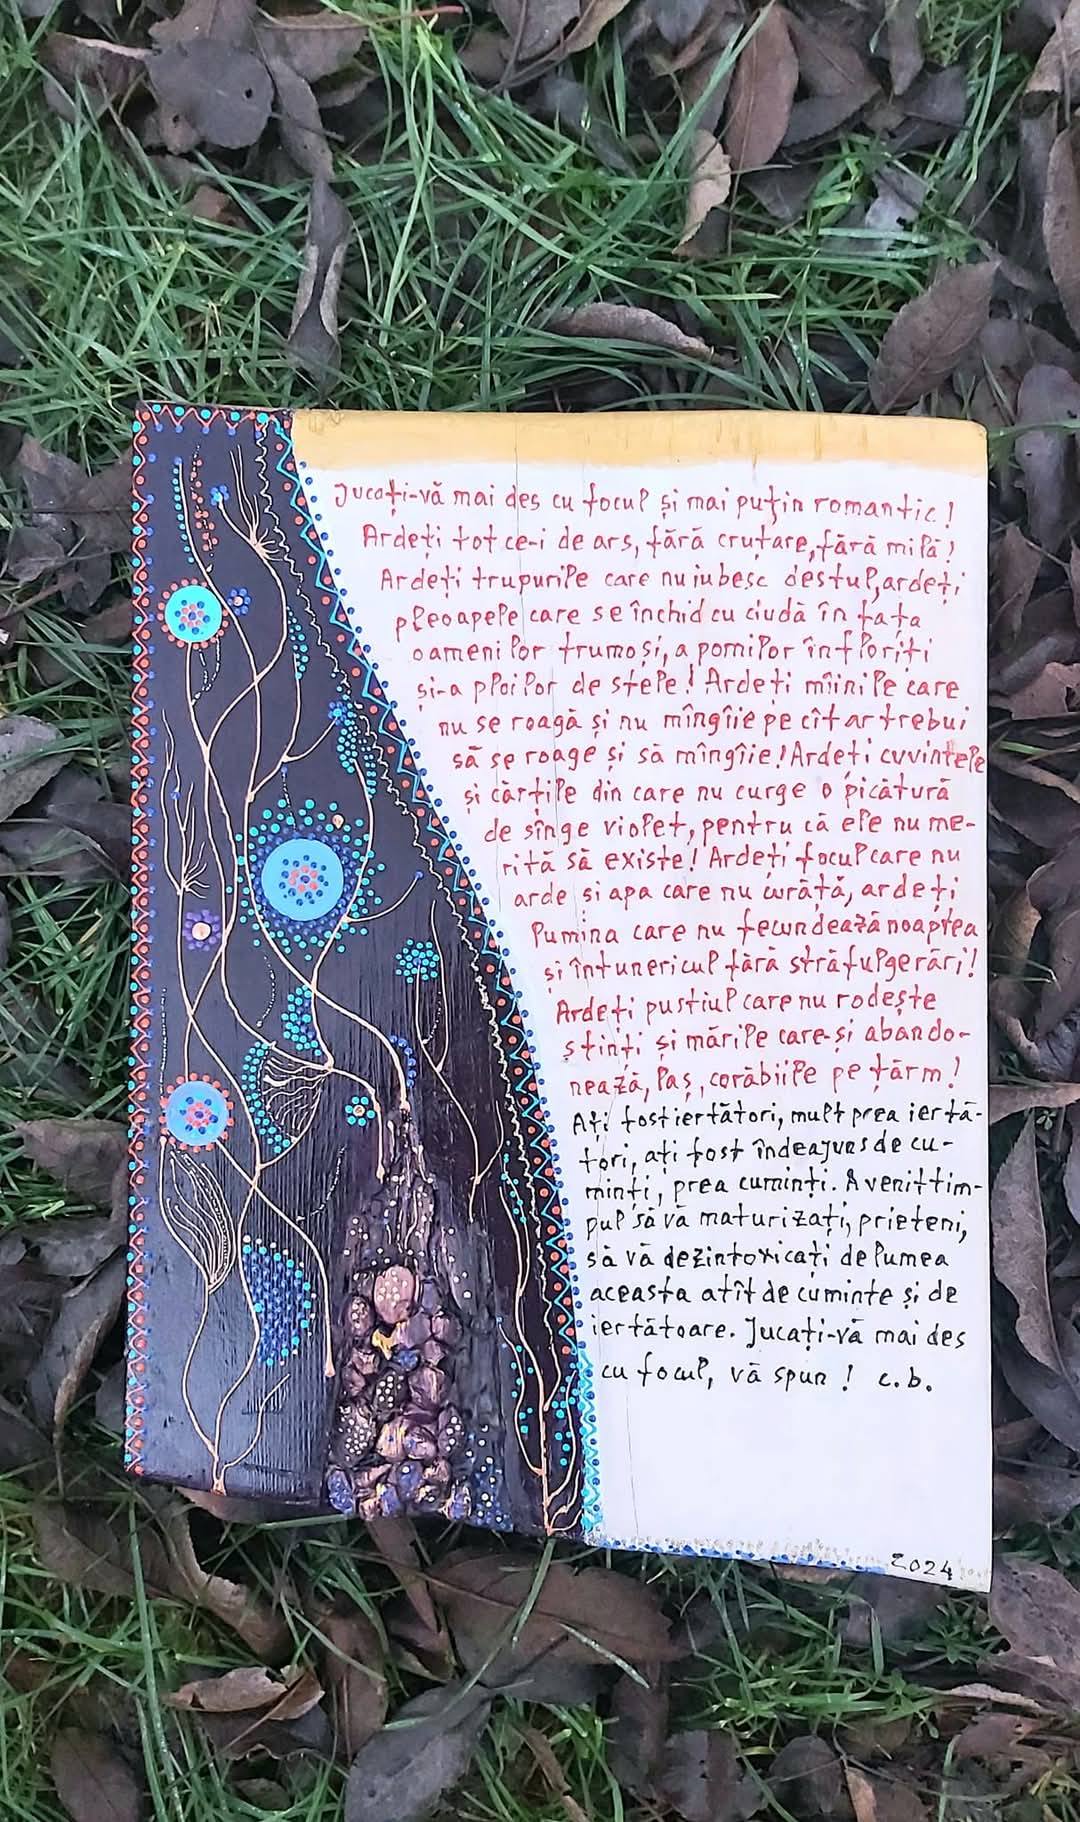 Jucați-vă mai des cu focul și mai puțin romantic!
Ardeți tot ce-i de ars, fără cruțare, fără milă!
Ardeți trupurile care nu iubesc destul, ardeți
pleoapele care se închid cu ciudă în fața
oamenilor frumoși, a pomilor înfloriți
și-a ploilor de stele! Ardeți mîinile care
nu se roagă și nu mîngîie pe cît ar trebui
să se roage și să mîngîie! Ardeți cuvintele
și cărțile din care nu curge o picătură
de sînge violet, pentru că ele nu me-
rită să existe! Ardeți focul care nu
arde și apa care nu curăță, ardeți
lumina care nu fecundează noaptea
și întunericul fără străfulgerări!
Ardeți pustiul care nu rodește
sfinți și mările care-și abando-
nează, laș, corăbiile pe țărm!
Ați fost iertători, mult prea iertă-
tori, ați fost îndeajuns de cu-
minți, prea cuminți. A venit tim-
pul să vă maturizați, prieteni,
să vă dezintoxicați de lumea
aceasta atît de cuminte și de
iertătoare. Jucați-vă mai des
cu focul, vă spun! c.b.
2024